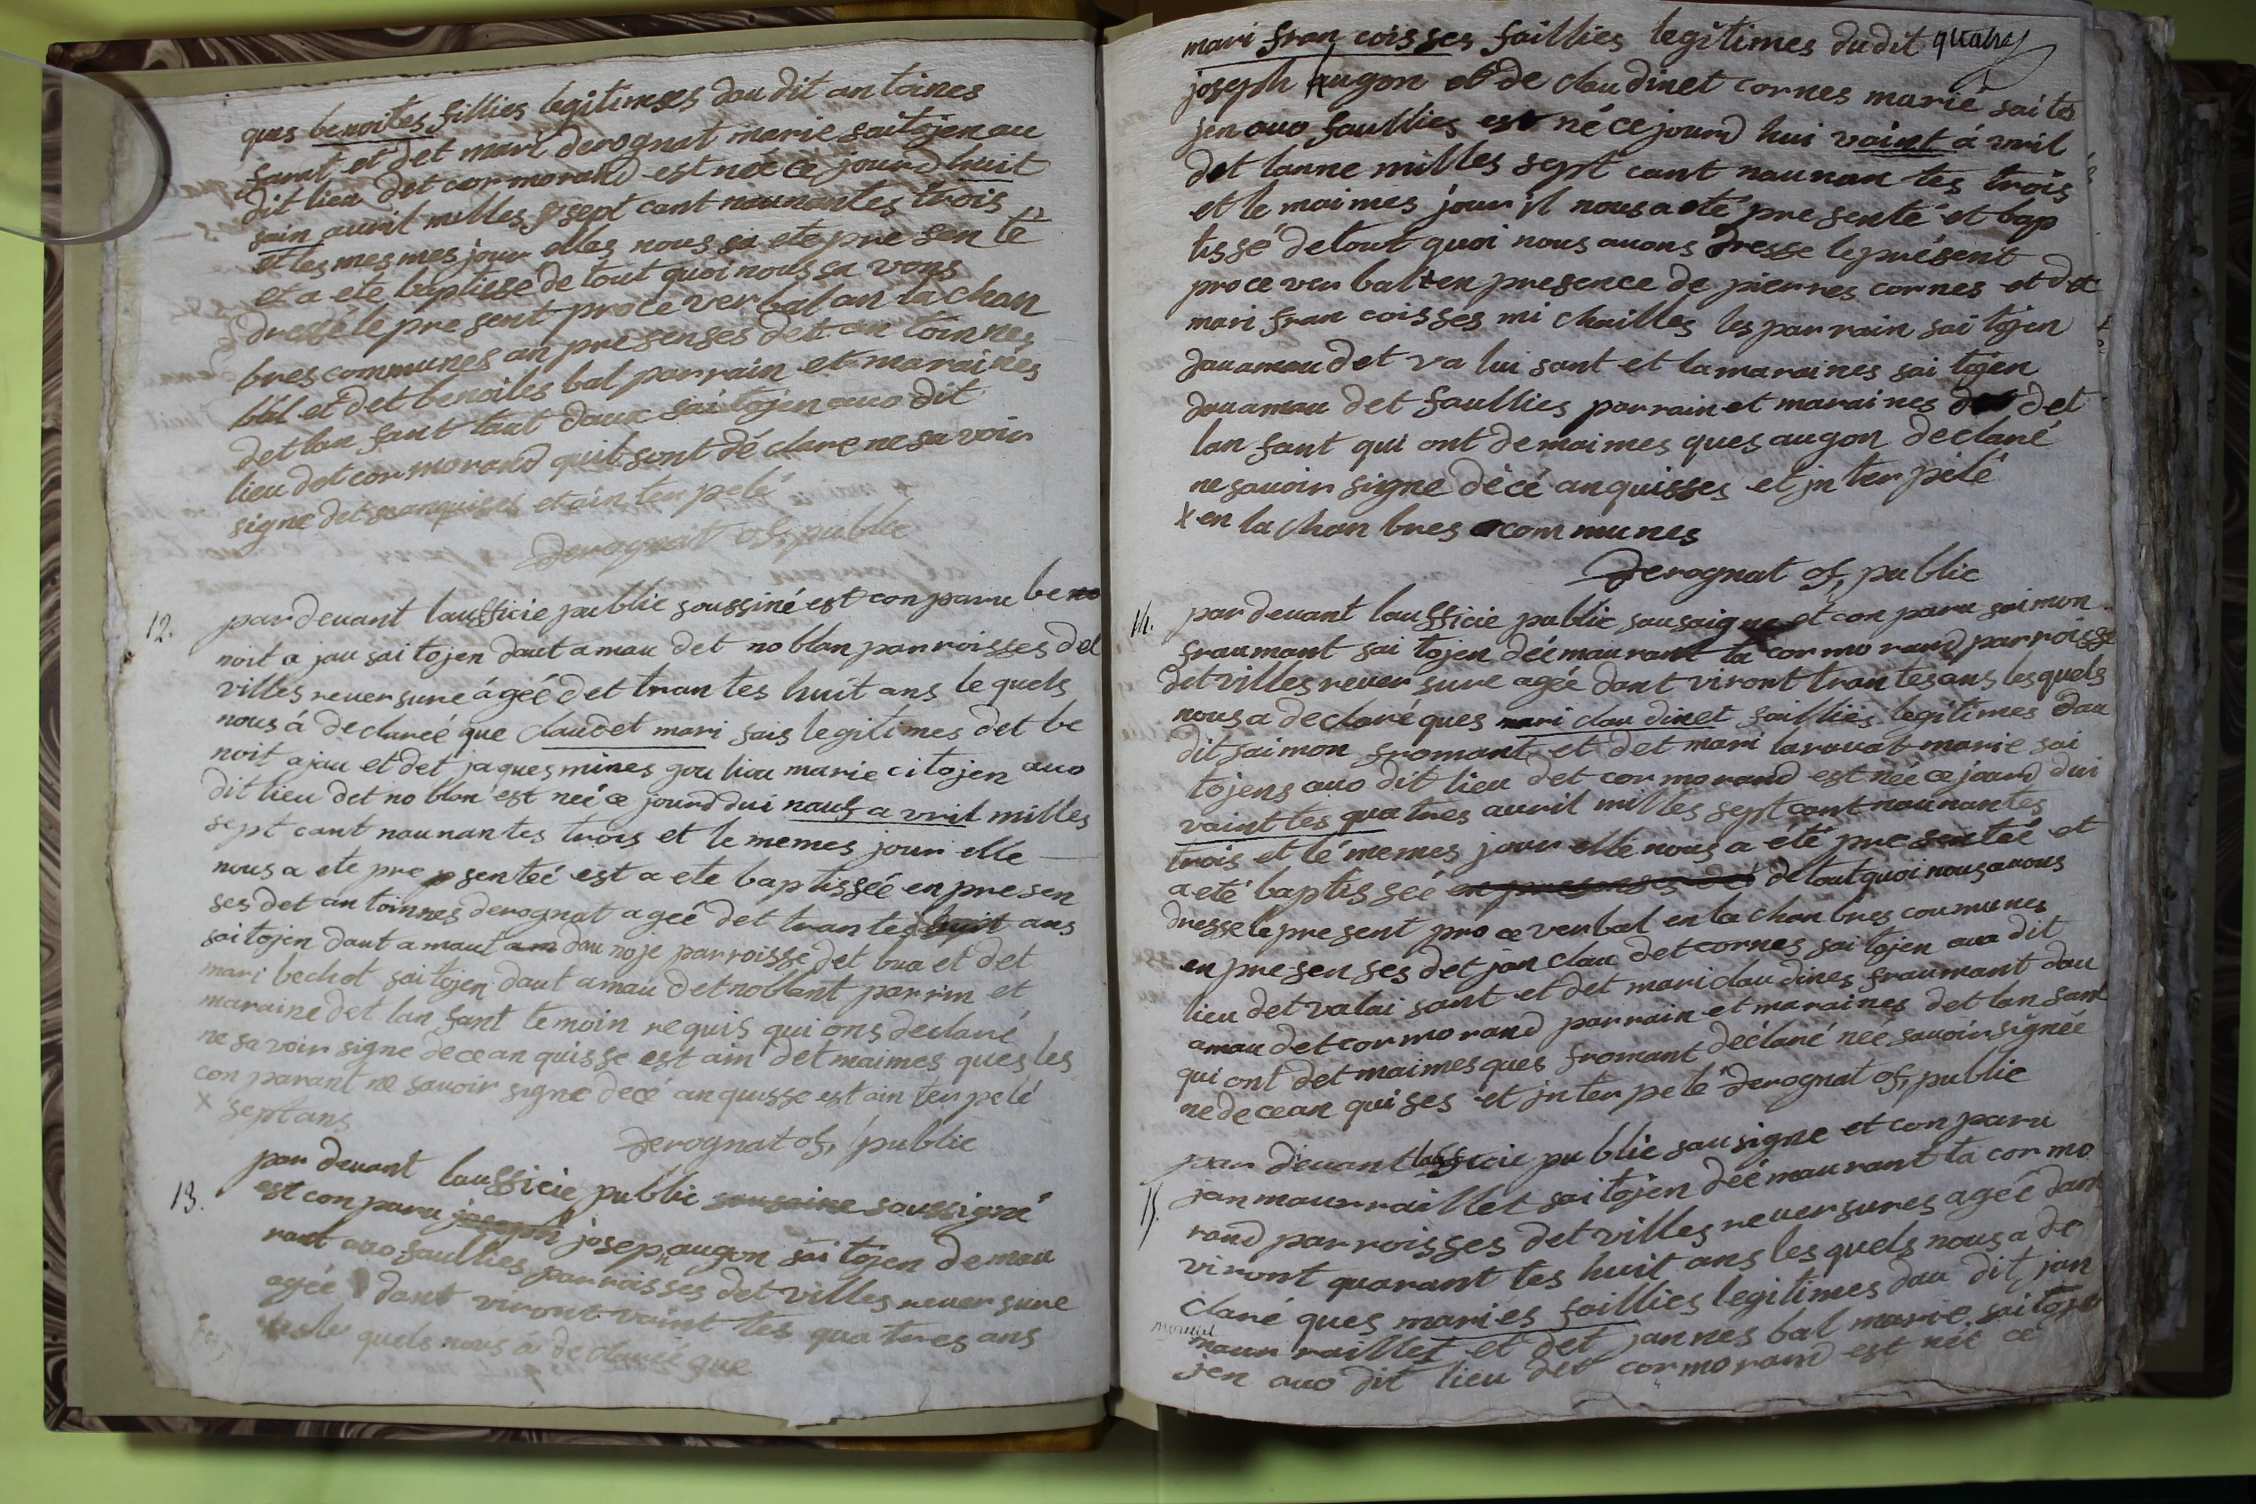 ques benoites fillies legitimes dau dit antoines
farut et det mari derognat marie saitojen au
dit lieu det cormorand est née ce jourd huit
sain auril milles sept cant naunantes trois
et les mesmes jour elles nous ia ete pre sen té
et a ete baptisse de tout quoi nous sa vons
dressé le pre sent proce verbal an la chan
bres communes an presenses det an toinnes
bal et det benoites bal parrain et maraines
det lan fant tant daux saitojen auo dit
lieu det cor morand quit sont dé clare ne sa voir
signe det seanquises et ain ter pelé
Derognat of, public
12. par devant laufficie public soussiné est conparu be no
noit a jau sai tojen daut a mau det no blan parroisses det
villes reuersure ágéé det tran tes huit ans le quels
nous á de clareé que claudet mari sais legitimes det be
noit ajau et det jaques mines gou liou marie citojen auo
dit lieu det no blan est neé ce jourd dui nauf a vril milles
sept cant naunan tes trois et le memes jour elle
nous a ete pre p senteé est a ete baptisséé en pre sen
ses det an toinnes derognat ageé det tran tes huit ans
sai tojen daut a maut am dau noje parroisse det bua et det
mari bechot sai tojen daut a mau det noblant parrin et
maraine det lan fant temoin requis qui ons declaré
ne sa voir signe dece an quisse est ain det maimes ques les
con parant ne savoir signe decé an quisse est ain ter pelé
x sept ans
Derognat of, public
13. par devant laufficie public sousaine soussigné
est con paru joseph josep augon sai tojen de mau
rant auo faullies parroisses det villes reuer sure
agée dant viront vaint tes qua tres ans
les quels nous á de clareé que
mari fran coisses faillies legitimes du dit quatre
joseph Augon et de clau dinet cornes marié sai to
jen auo faullies est né ce jourd hui vaint á vril
det lanne milles sept cant naunan tes trois
et le maimes jour il nous a eté pre senté et bap
tissé de tout quoi nous auons dresse le présent
proce ver bal x en presence de pierres cornes et det
mari fran coisses mi chailles les par rain sai tojen
dau amau det va lui sant et la maraines sai tojen
dau amau det faullies parrain et maraines det det
lan fant qui ont de maimes ques augon declaré
ne savoir signe décé an quisses et jn ter pélé
x en la chan bres communes
Derognat of, public
14. par devant laufficie public sausaigne et con paru saimon
fraumant sai tojen déémaurant ta cor mo rand parroisse
det villes reuer sure agée dant viront trantes ans les quels
nous a declaré ques mari clau dinet faillies legitimes dau
dit saimon fromant et det mari larauat marie sai
tojens auo dit lieu det cor morand est néé ce jourd dui
vaint tes qua tres auril milles sept cant naunantes
trois et lé memes jour elle nous a été presenteé et
a eté baptis séé en presenses dé de tout quoi nous auons
dresse le present pro ce verbal en la chan bres coumunes
en presen ses det jan clau det cornes sai tojen auo dit
lieu det valai sant et det mari clau dines fraumant dau
amau det cor mo rand parrain et maraines det lan fant
qui ont det maimes ques fromant déclaré neé savoir signéé
ne de cean qui ses et jn ter pe lé Derognat of, public
15. par devant laufficie public sau signe et con paru
jan maurraillet sai tojen déé maurant ta cor mo
rand parroisses det villes reuersures agéé dant
viront quarant tes huit ans les quels nous a dé
claré ques maries faillies legitimes dau dit jan
maur raillet et det jannes bal marie sai toje
jen auo dit lieu det cor morand est néé ce